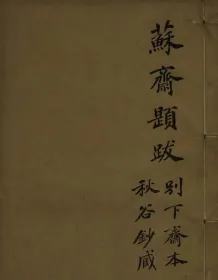 蘇齋題跋
別下齋本
秋谷鈔藏